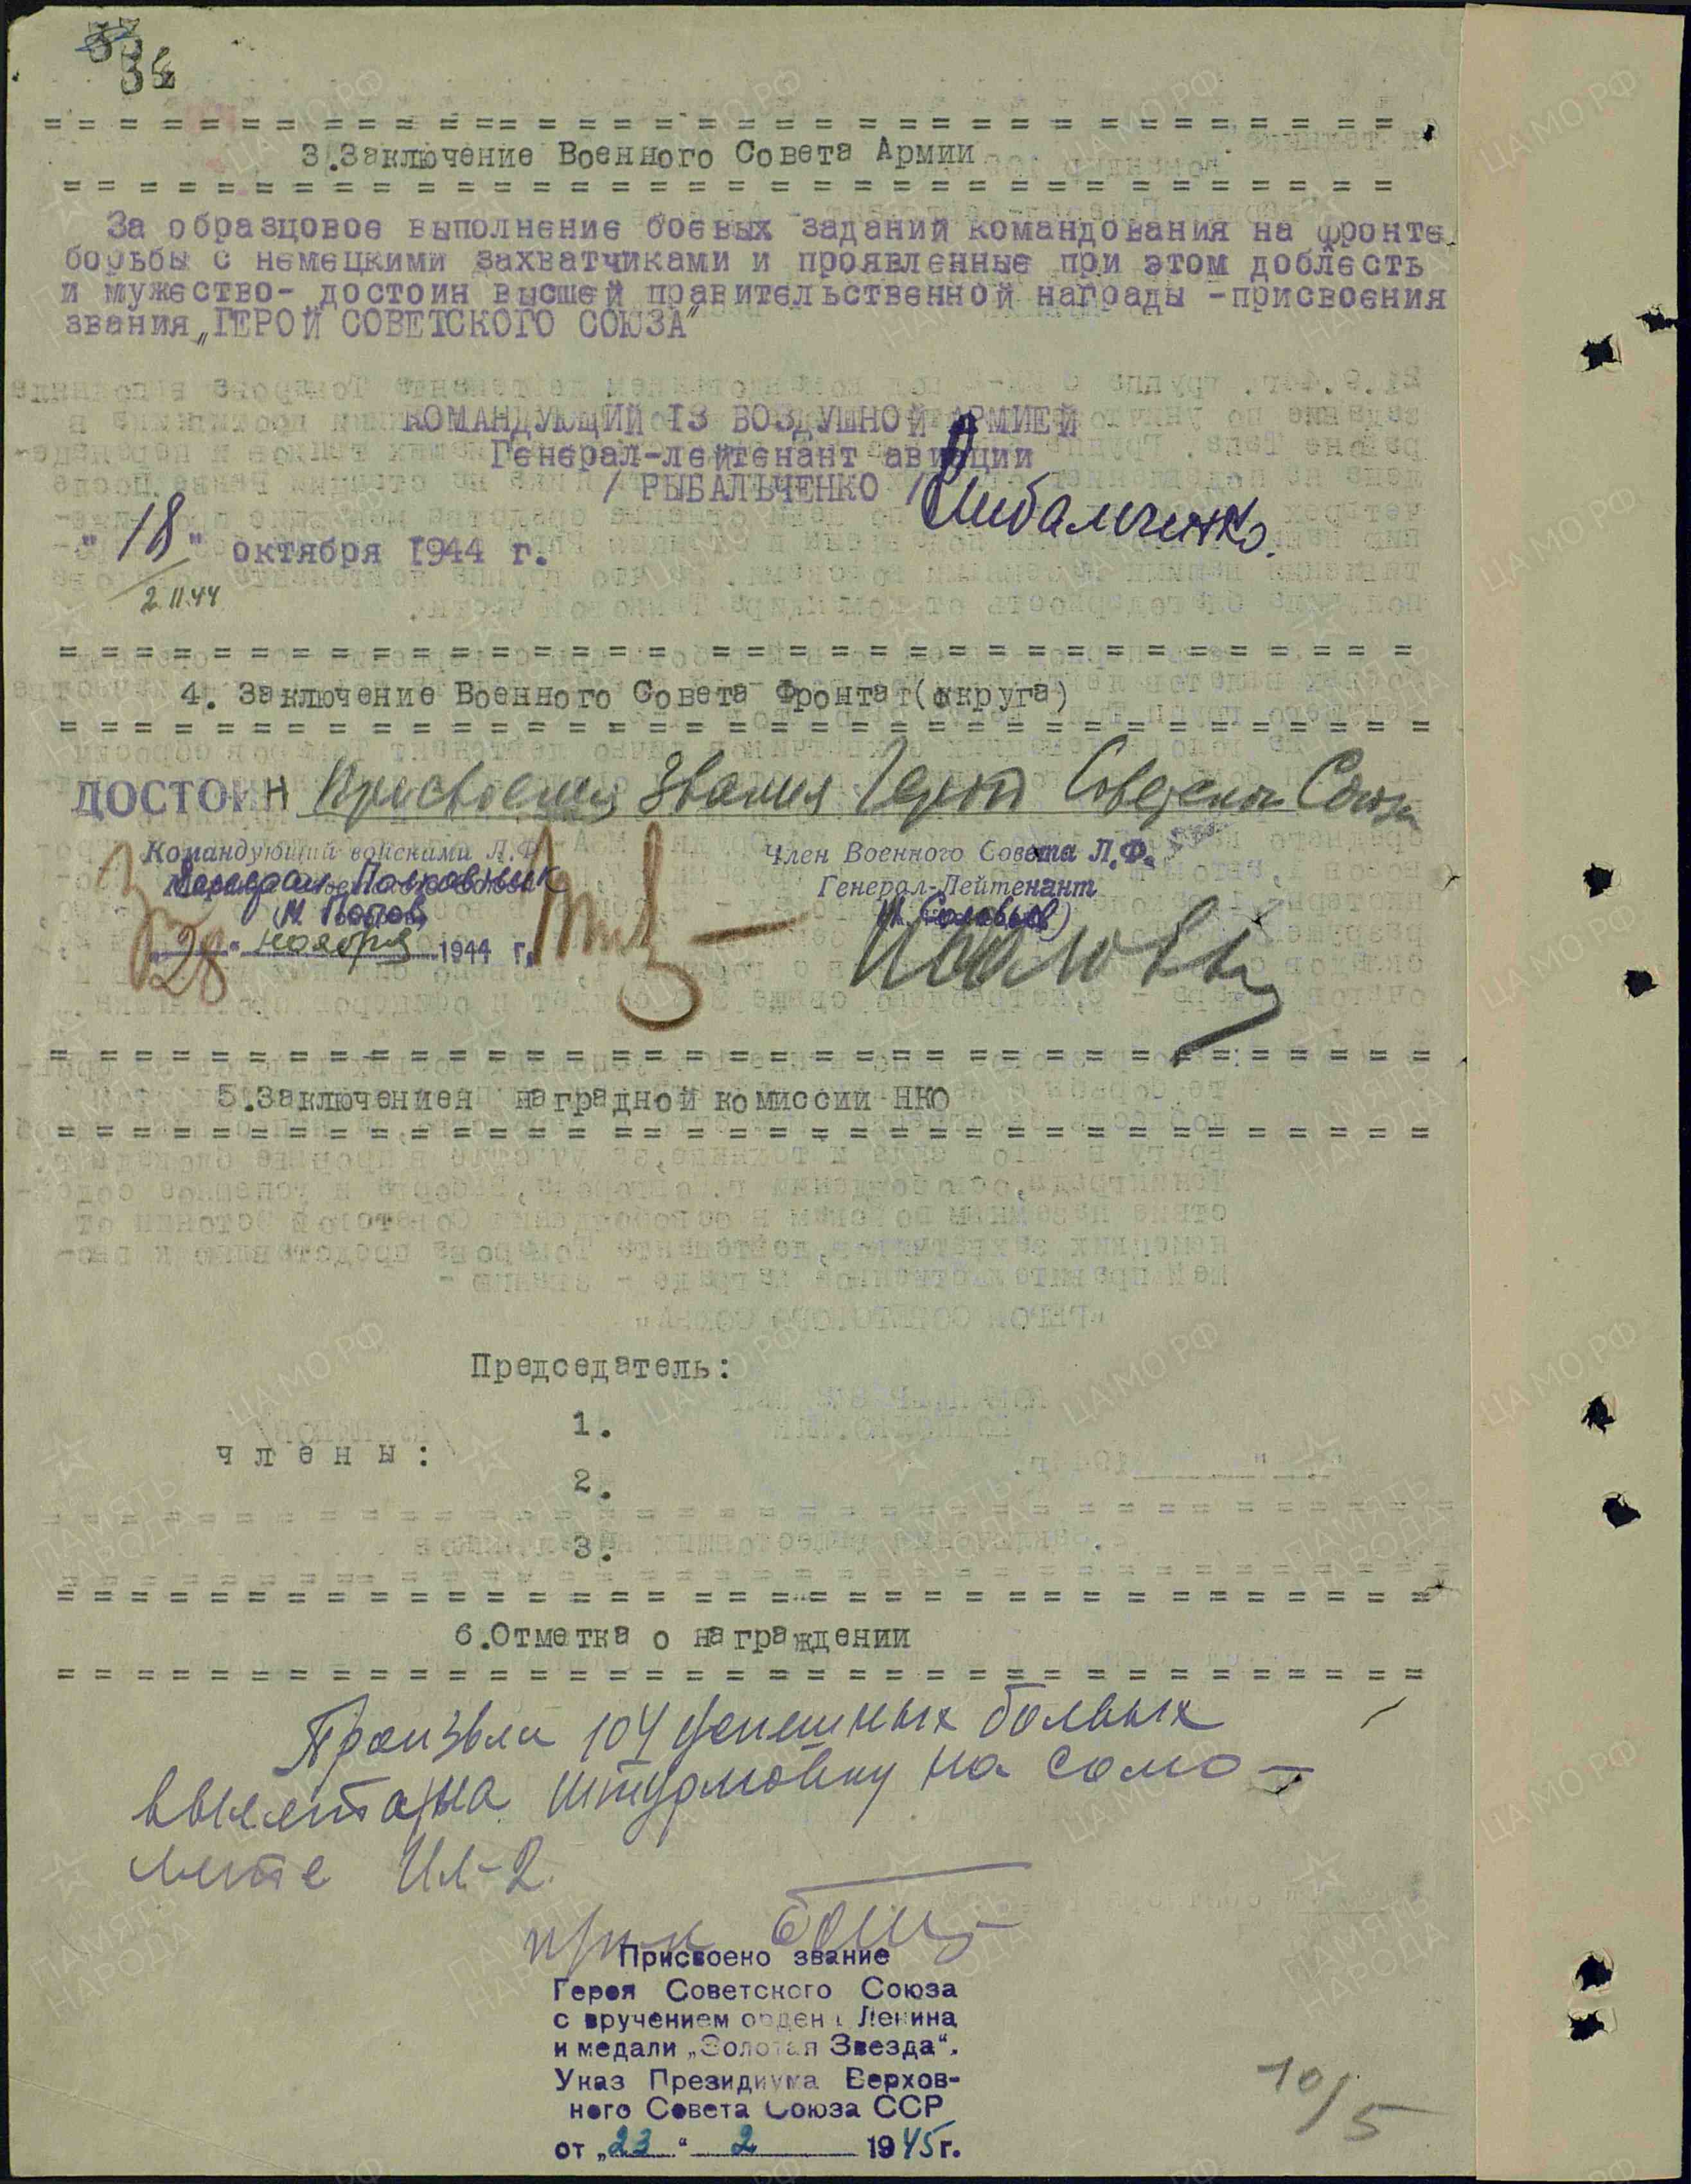 34
3.Заключение Военного Совета Армии
За образцовое выполнение боевых заданий командования на фронте
борьбы с немецкими захватчиками и проявленные при этом доблесть
и мужество- достоин высшей правительственной награды -присвоения
звания „ГЕРОЙ СОВЕТСКОГО СОЮЗА"
КОМАНДУЮЩИЙ 13 ВОЗДУШНОЙ АРМИЕЙ
Генерал-лейтенант авиации
/ РЫБАЛЬЧЕНКО /
"18" октября 1944 г.
2.11.44
4. Заключение Военного Совета Фронтат(округа)
ДОСТОИН присвоения звания Герой Советского Союза
Командующий войсками Л.Ф.
Генерал Полковник
(М. Попов)
"28" ноября 1944 г.
Член Военного Совета Л.Ф.
Генерал-Лейтенант
5.Заключениен наградной комиссии НКО
Председатель:
члены:
1.
2.
3.
6.Отметка о награждении
Произвел 104 успешных боевых
вылета на штурмовку на само-
лете Ил-2.
Присвоено звание
Героя Советского Союза
с вручением ордена Ленина
и медали „Золотая Звезда".
Указ Президиума Верхов-
ного Совета Союза ССР
от „23" 2 1945г.
10/5